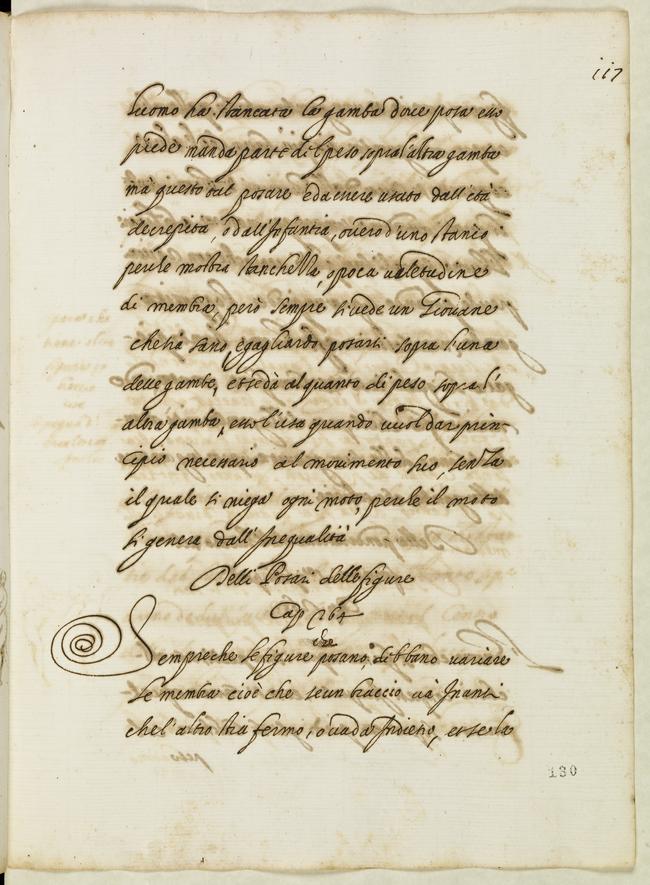 117
luomo ha stancata la gamba doue posa esso
piede manda parte del peso sopra l'altra gamba
mà questo tal posare è da essere usato dall'età
decrepita, o dall'Infantia, ouero d'uno stanco
perche mostra stanchezza, o poca ualetudine
di membra, però sempre si uede un Giouane
che sia sano, e gagliardo posarsi sopra l'una
delle gambe, et se dà alquanto di peso sopra l'
altra gamba, esso l'usa quando uuol dar prin-
cipio necessario al mouimento suo, senza
il quale si niega ogni moto, perche il moto
si genera dall'Inequalità
Delli Posari delle figure
Cap 264
che
Sempreche le figure posano, debbano uariare
le membra cioè che se un braccio uà Inanti
che l'altro stia fermo, o uada Indietro, et se la
130